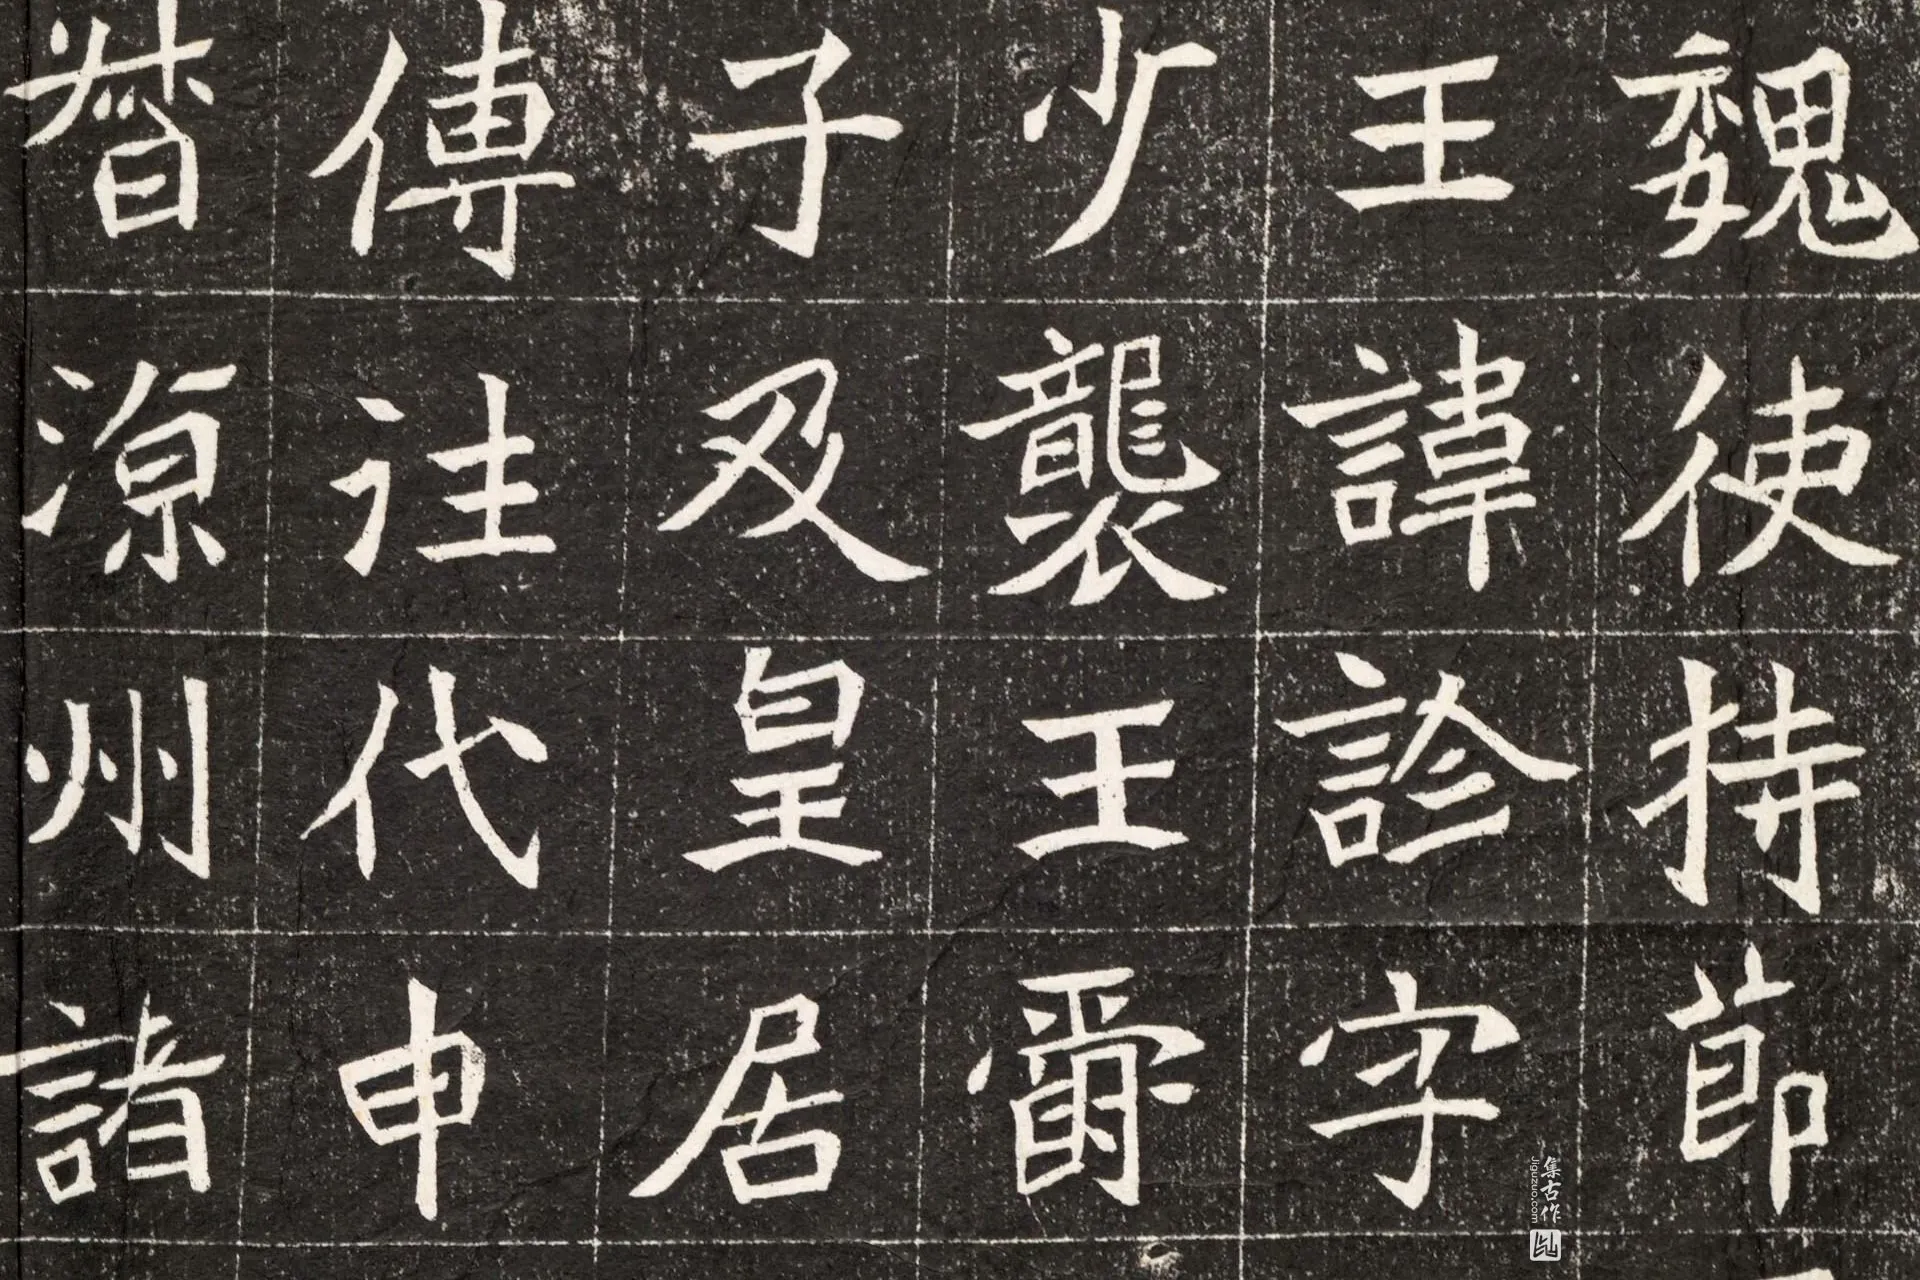 魏使持節
王諱診字
少襲王爵
子及皇居
傅往代申
督源州諸
集古作
Jiguzuo.com